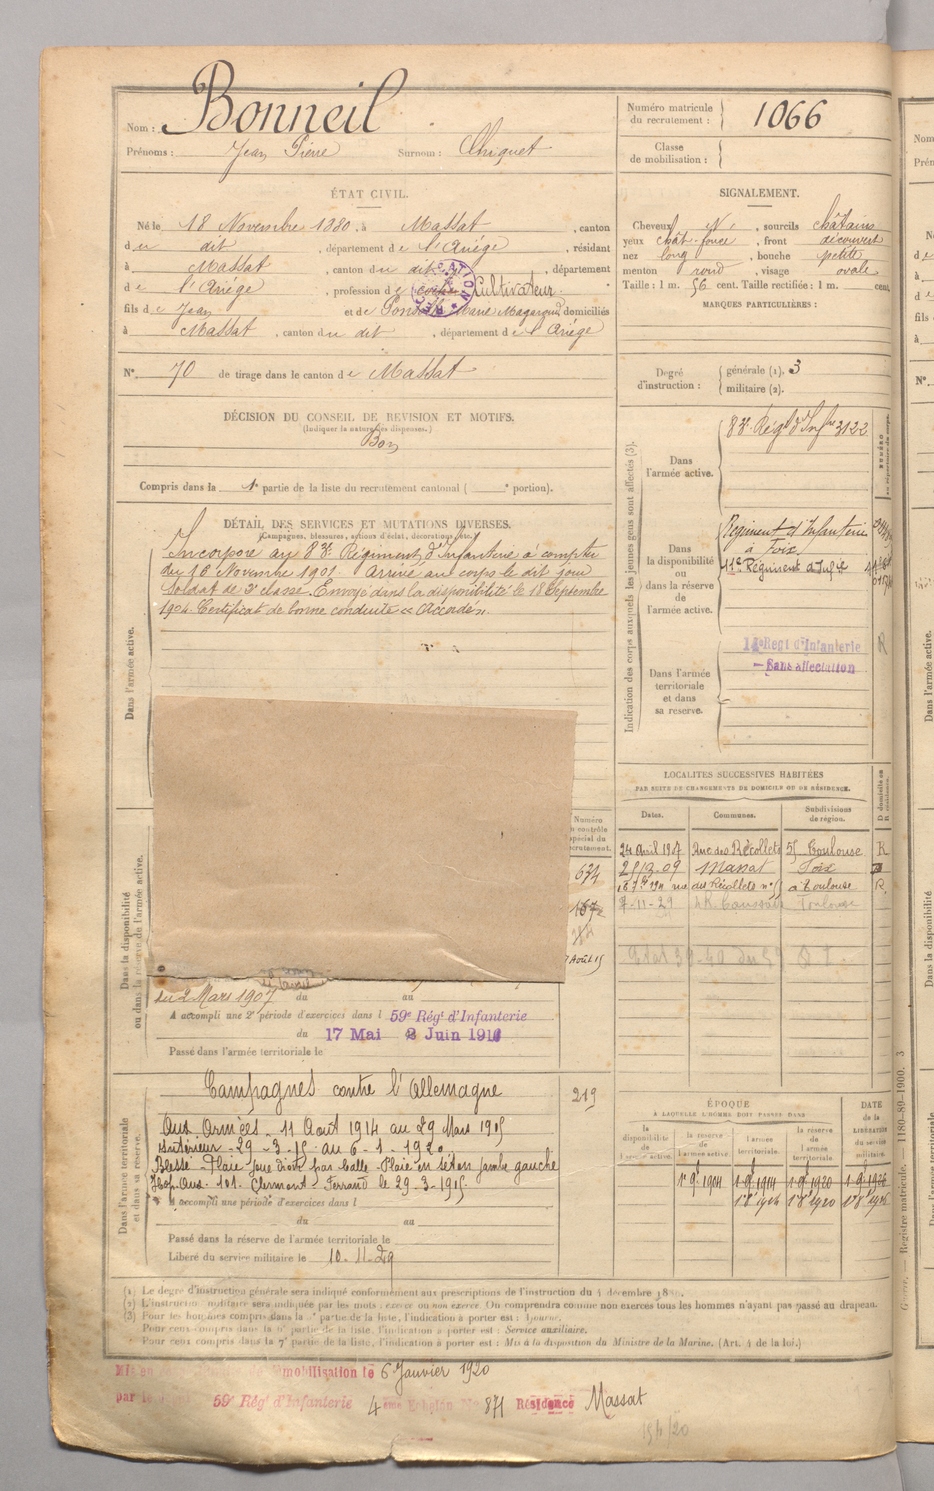 Nom : Bonneil
Prénoms : Jean Pierre Surnom : Chiquet
Numéro matricule du recrutement : 1066
Classe de mobilisation :
ÉTAT CIVIL.
Né le 18 Novembre 1880, à Massat, canton
du dit, département de l'Ariège, résidant
à Massat, canton du dit, département
de l'Ariège, profession de Cultivateur
fils de Jean et de Marie domiciliés
à Massat, canton du dit, département de l'Ariège
N° 70 de tirage dans le canton de Massat
SIGNALEMENT.
Cheveux N, sourcils châtains
yeux chât. foncé, front découvert
nez long, bouche petite
menton rond, visage ovale
Taille : 1 m. 56 cent. Taille rectifiée : 1 m. cent.
MARQUES PARTICULIÈRES :
Degré d'instruction : générale (1). 3
militaire (2).
DÉCISION DU CONSEIL DE REVISION ET MOTIFS.
(Indiquer la nature des dispenses.)
Bon
Compris dans la 1e partie de la liste du recrutement cantonal ( e portion).
DÉTAIL DES SERVICES ET MUTATIONS DIVERSES.
(Campagnes, blessures, actions d'éclat, décorations, etc.)
Incorporé au 83e Régiment d'Infanterie à compter
du 16 Novembre 1901. Arrivé au corps le dit jour
Soldat de 2e classe. Envoyé dans la disponibilité le 18 Septembre
1904. Certificat de bonne conduite "Accordé".
Dans l'armée active.
Indication des corps auxquels les jeunes gens sont affectés (3).
Dans l'armée active. 83e Régt d'Infrie 3122
Dans la disponibilité ou dans la réserve de l'armée active.
Régiment d'Infanterie
à Foix
Régiment d'Infie
Dans l'armée territoriale et dans sa réserve.
14e Régt d'Infanterie
Sans affectation
R
LOCALITÉS SUCCESSIVES HABITÉES
PAR SUITE DE CHANGEMENTS DE DOMICILE OU DE RÉSIDENCE.
Dates. Communes. Subdivisions de région.
24 Avril 1907 Rue des Récollets 55 Toulouse R
25-12-09 Massat Foix
rue des Récollets n° à Toulouse R.
7-11-29 Toulouse
Dans la disponibilité ou dans la réserve de l'armée active.
Numéro
du contrôle
spécial du
recrutement.
634
Août 15
du 2 Mars 1907 du au
A accompli une 2e période d'exercices dans l 59e Rég' d'Infanterie
du 17 Mai 2 Juin 191
Passé dans l'armée territoriale le
Dans l'armée territoriale et dans sa réserve.
Campagnes contre l'Allemagne
219
Aux Armées - 11 Août 1914 au 29 Mars 1915
Intérieur - 29-3-15 au 6-1-1920
Blessé - Plaie joue droite par balle - Plaie en séton jambe gauche
Hop. Aux. 101. Clermont-Ferrand le 29-3-1915
A accompli une période d'exercices dans l
du au
Passé dans la réserve de l'armée territoriale le
Libéré du service militaire le 10-11-29
ÉPOQUE
À LAQUELLE L'HOMME DOIT PASSER DANS
DATE de la LIBÉRATION du service militaire.
la disponibilité de l'armée active. la réserve de l'armée active. l'armée territoriale. la réserve de l'armée territoriale.
(1) Le degré d'instruction générale sera indiqué conformément aux prescriptions de l'instruction du 4 décembre 18
(2) L'instruction militaire sera indiquée par les mots : exercé ou non exercé. On comprendra comme non exercés tous les hommes n'ayant pas passé au drapeau.
(3) Pour les hommes compris dans la partie de la liste, l'indication à porter est :
Pour ceux compris dans la partie de la liste, l'indication à porter est : Service auxiliaire.
Pour ceux compris dans la 7e partie de la liste, l'indication à porter est : Mis à la disposition du Ministre de la Marine. (Art. 4 de la loi.)
Mis en démobilisation le 6 Janvier 1920
par le 59e Rég' d'Infanterie 4ème Echelon N° 871 Résidence Massat
194/20
Registre matricule. — 1180-89-1900. 3